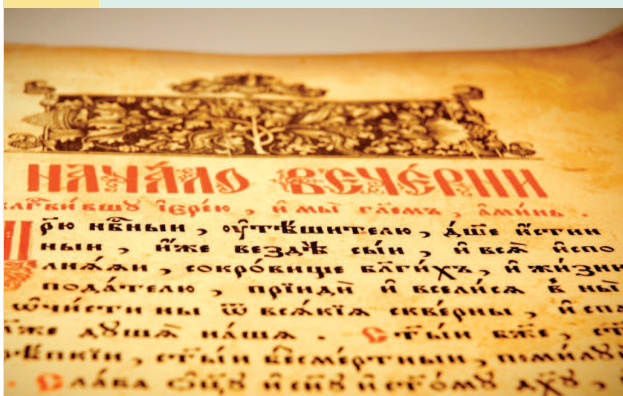 НАЧА́ЛО ВЕЧЕ́РНИ
і҆ере́ю , и҆ мы̀ гл҃емъ , а҆ми́нь .
рю̀ нб҃ныи , ᲂу҆тѣ́шителю , дш҃е и҆́стин
ныи , и҆́же вездѣ̀ сы́и , и҆ всѧ̀ и҆спо
лнѧ́ѧи , сокро́вище бл҃ги́хъ , и҆ жи́зни
пода́телю , прїидѝ и҆ всели́сѧ в ны̀
ѡ҆чи́сти ны ѿ всѧ́кїѧ скве́рны , и҆ спа
дꙋ́шѧ на́шѧ . С҃ты́и бж҃е , ст҃
крѣ́пкїи , ст҃ы́и безсме́ртныи , поми́лꙋи
Сла́ва ѻ҆ц҃ꙋ̀ и҆ сн҃ꙋ и҆ ст҃о́мꙋ дх҃ꙋ ,